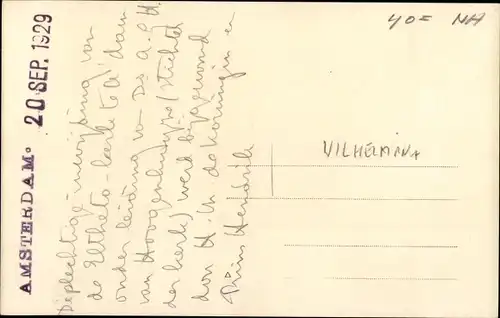 AMSTERDAM. 20 SEP. 1929
40= NH
Plechtige inwijding van
de Eltheto-kerk te A'dam
onder leiding v. Ds. a. g. H.
van Hoogenhuyze (stichter
der kerk) werd bijgewoond
door H.M. de Koningin en
Prins Hendrik
WILHELMINA